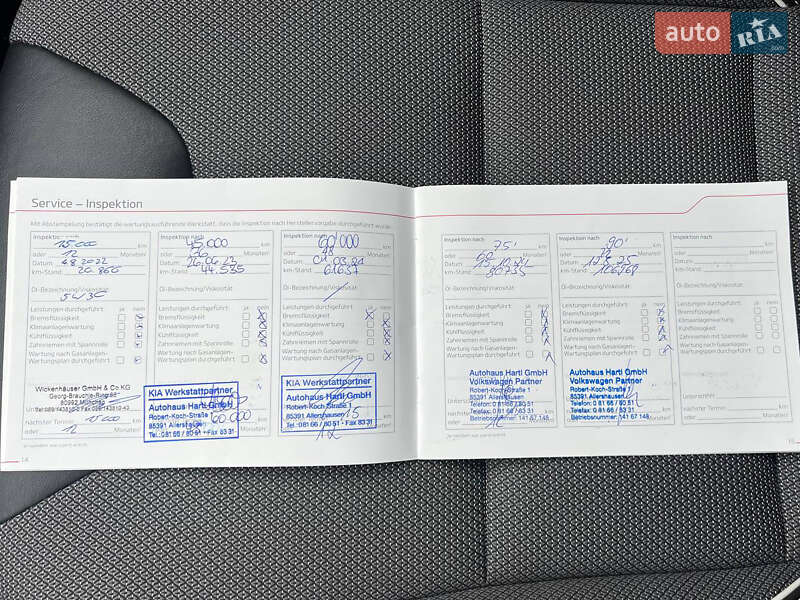 auto RIA.com
Service – Inspektion
Mit Abstempelung bestätigt die wartungsausführende Werkstatt, dass die Inspektion nach Herstellervorgabe durchgeführt wurde.
Inspektion nach
15.000 km
oder 12 Monaten
Datum 4.8.2022
km-Stand 20.866
Öl-Bezeichnung/Viskosität:
5W30
Leistungen durchgeführt: ja nein
Bremsflüssigkeit
Klimaanlagenwartung
Kühlflüssigkeit
Zahnriemen mit Spannrolle
Wartung nach Gasanlagen-
Wartungsplan durchgeführt
Wickenhäuser GmbH & Co KG
Georg-Brauchle-Ring
80992 München
nächster Termin 15000 km
oder 12 Monaten
14
Inspektion nach
45.000 km
oder 36 Monaten
Datum 26.04.23
km-Stand 44.535
Öl-Bezeichnung/Viskosität:
Leistungen durchgeführt: ja nein
Bremsflüssigkeit
Klimaanlagenwartung
Kühlflüssigkeit
Zahnriemen mit Spannrolle
Wartung nach Gasanlagen-
Wartungsplan durchgeführt
KIA Werkstattpartner
Autohaus Hartl GmbH
Robert-Koch-Straße
85391 Allershausen
Tel.: 081 66 / 80 51 - Fax 83 31
60.000
Monaten
Inspektion nach
60.000 km
oder 48 Monaten
Datum
km-Stand 61.637
Öl-Bezeichnung/Viskosität:
Leistungen durchgeführt: ja nein
Bremsflüssigkeit
Klimaanlagenwartung
Kühlflüssigkeit
Zahnriemen mit Spannrolle
Wartung nach Gasanlagen-
Wartungsplan durchgeführt
KIA Werkstattpartner
Autohaus Hartl GmbH
Robert-Koch-Straße 1
85391 Allershausen
Tel.: 081 66 / 80 51 - Fax 83 31
12 Monaten
Inspektion nach
75' km
oder Monaten
Datum
km-Stand 90735
Öl-Bezeichnung/Viskosität:
Leistungen durchgeführt: ja nein
Bremsflüssigkeit
Klimaanlagenwartung
Kühlflüssigkeit
Zahnriemen mit Spannrolle
Wartung nach Gasanlagen-
Wartungsplan durchgeführt
Autohaus Hartl GmbH
Volkswagen Partner
Robert-Koch-Straße 1
85391 Allershausen
Telefon: 0 81 66 / 80 51
Telefax: 0 81 66 / 83 31
Betriebsnummer: 141 67 148
oder 12 Monaten
Inspektion nach
90' km
oder Monaten
Datum
km-Stand
Öl-Bezeichnung/Viskosität:
Leistungen durchgeführt: ja nein
Bremsflüssigkeit
Klimaanlagenwartung
Kühlflüssigkeit
Zahnriemen mit Spannrolle
Wartung nach Gasanlagen-
Wartungsplan durchgeführt
Autohaus Hartl GmbH
Volkswagen Partner
Robert-Koch-Straße 1
85391 Allershausen
Telefon: 0 81 66 / 80 51
Telefax: 0 81 66 / 83 31
Betriebsnummer: 141 67 148
Monaten
Inspektion nach
km
oder Monaten
Datum
km-Stand
Öl-Bezeichnung/Viskosität:
Leistungen durchgeführt: ja nein
Bremsflüssigkeit
Klimaanlagenwartung
Kühlflüssigkeit
Zahnriemen mit Spannrolle
Wartung nach Gasanlagen-
Wartungsplan durchgeführt
Unterschrift
nächster Termin km
oder Monaten
15